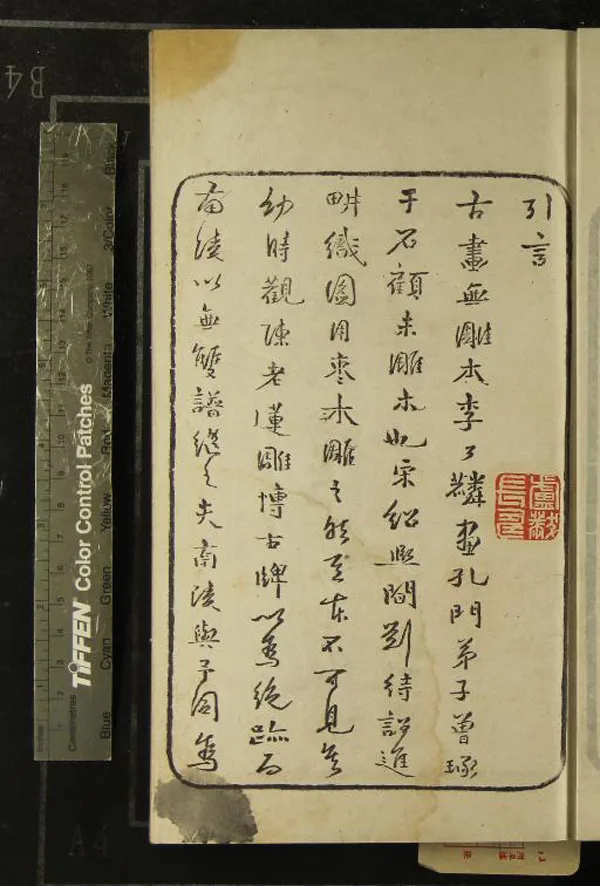 引言
古畫無雕本李公麟畫孔門弟子曾琢
于石顧未雕木也宋紹熙間劉待詔進
畊織圖用棗木雕之然其本不可見矣
幼時觀陳老蓮雕博古牌以為絶跡而
南陵以無雙譜繼之夫南陵與予同為
TIFFEN Color Control Patches
Blue Cyan Green Yellow Red Magenta White 3/Color Black
Centimetres
Inches
B4
A4